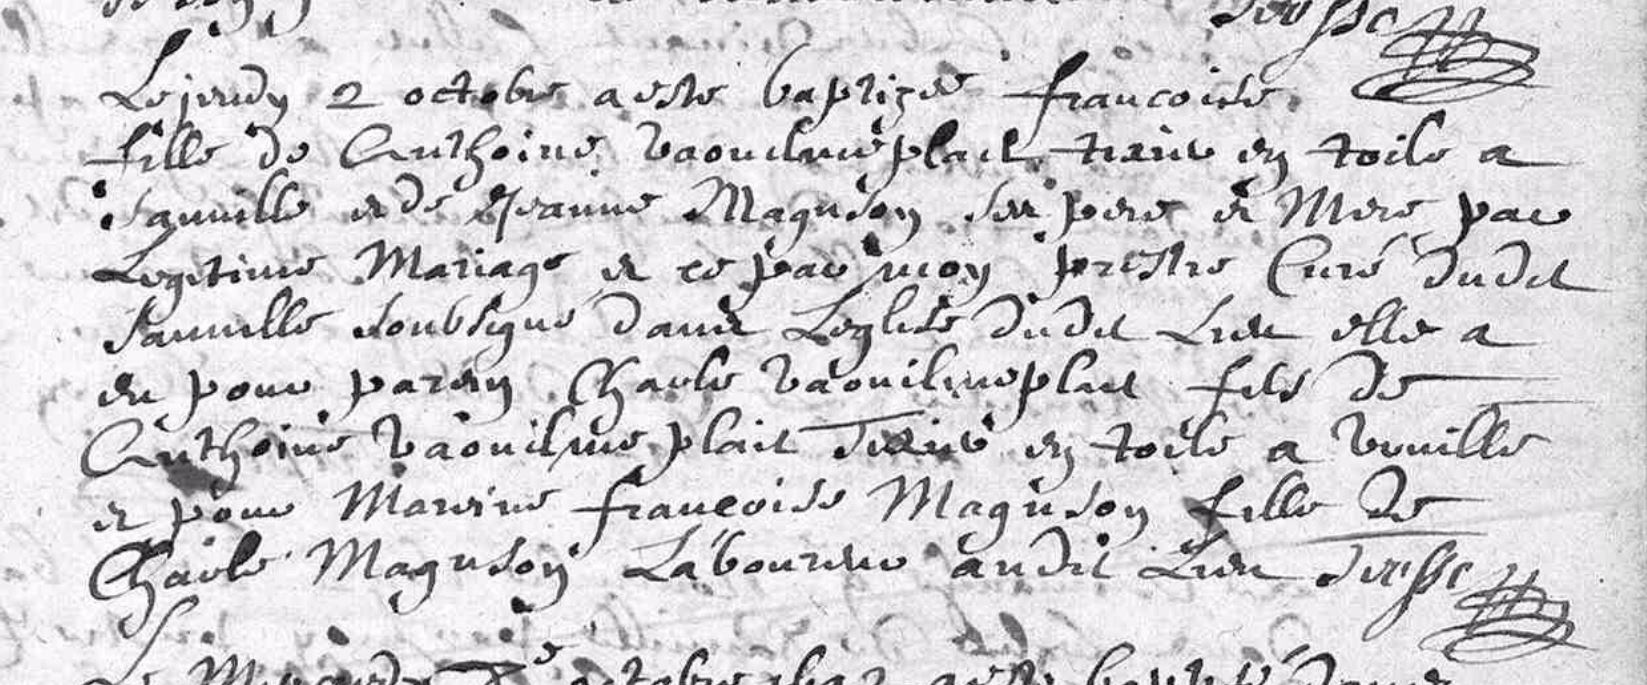 Le jeudy 2 octobre a este baptizeé francoise
fille de Anthoine Vaouilmeplait en toile a
Janville et de Jeanne Maguson ses pere et Mere par
Legitime Mariage et ce par moy prestre Curé dudit
Janville soubsigné dans Leglise dudit Lieu elle a
eu pour parein Charle Vaouilmeplait fils de
Anthoine Vaouilmeplait en toile a
et pour Mareine francoise Maguson fille de
Charle Maguson Laboureur audit Lieu
octobre a este